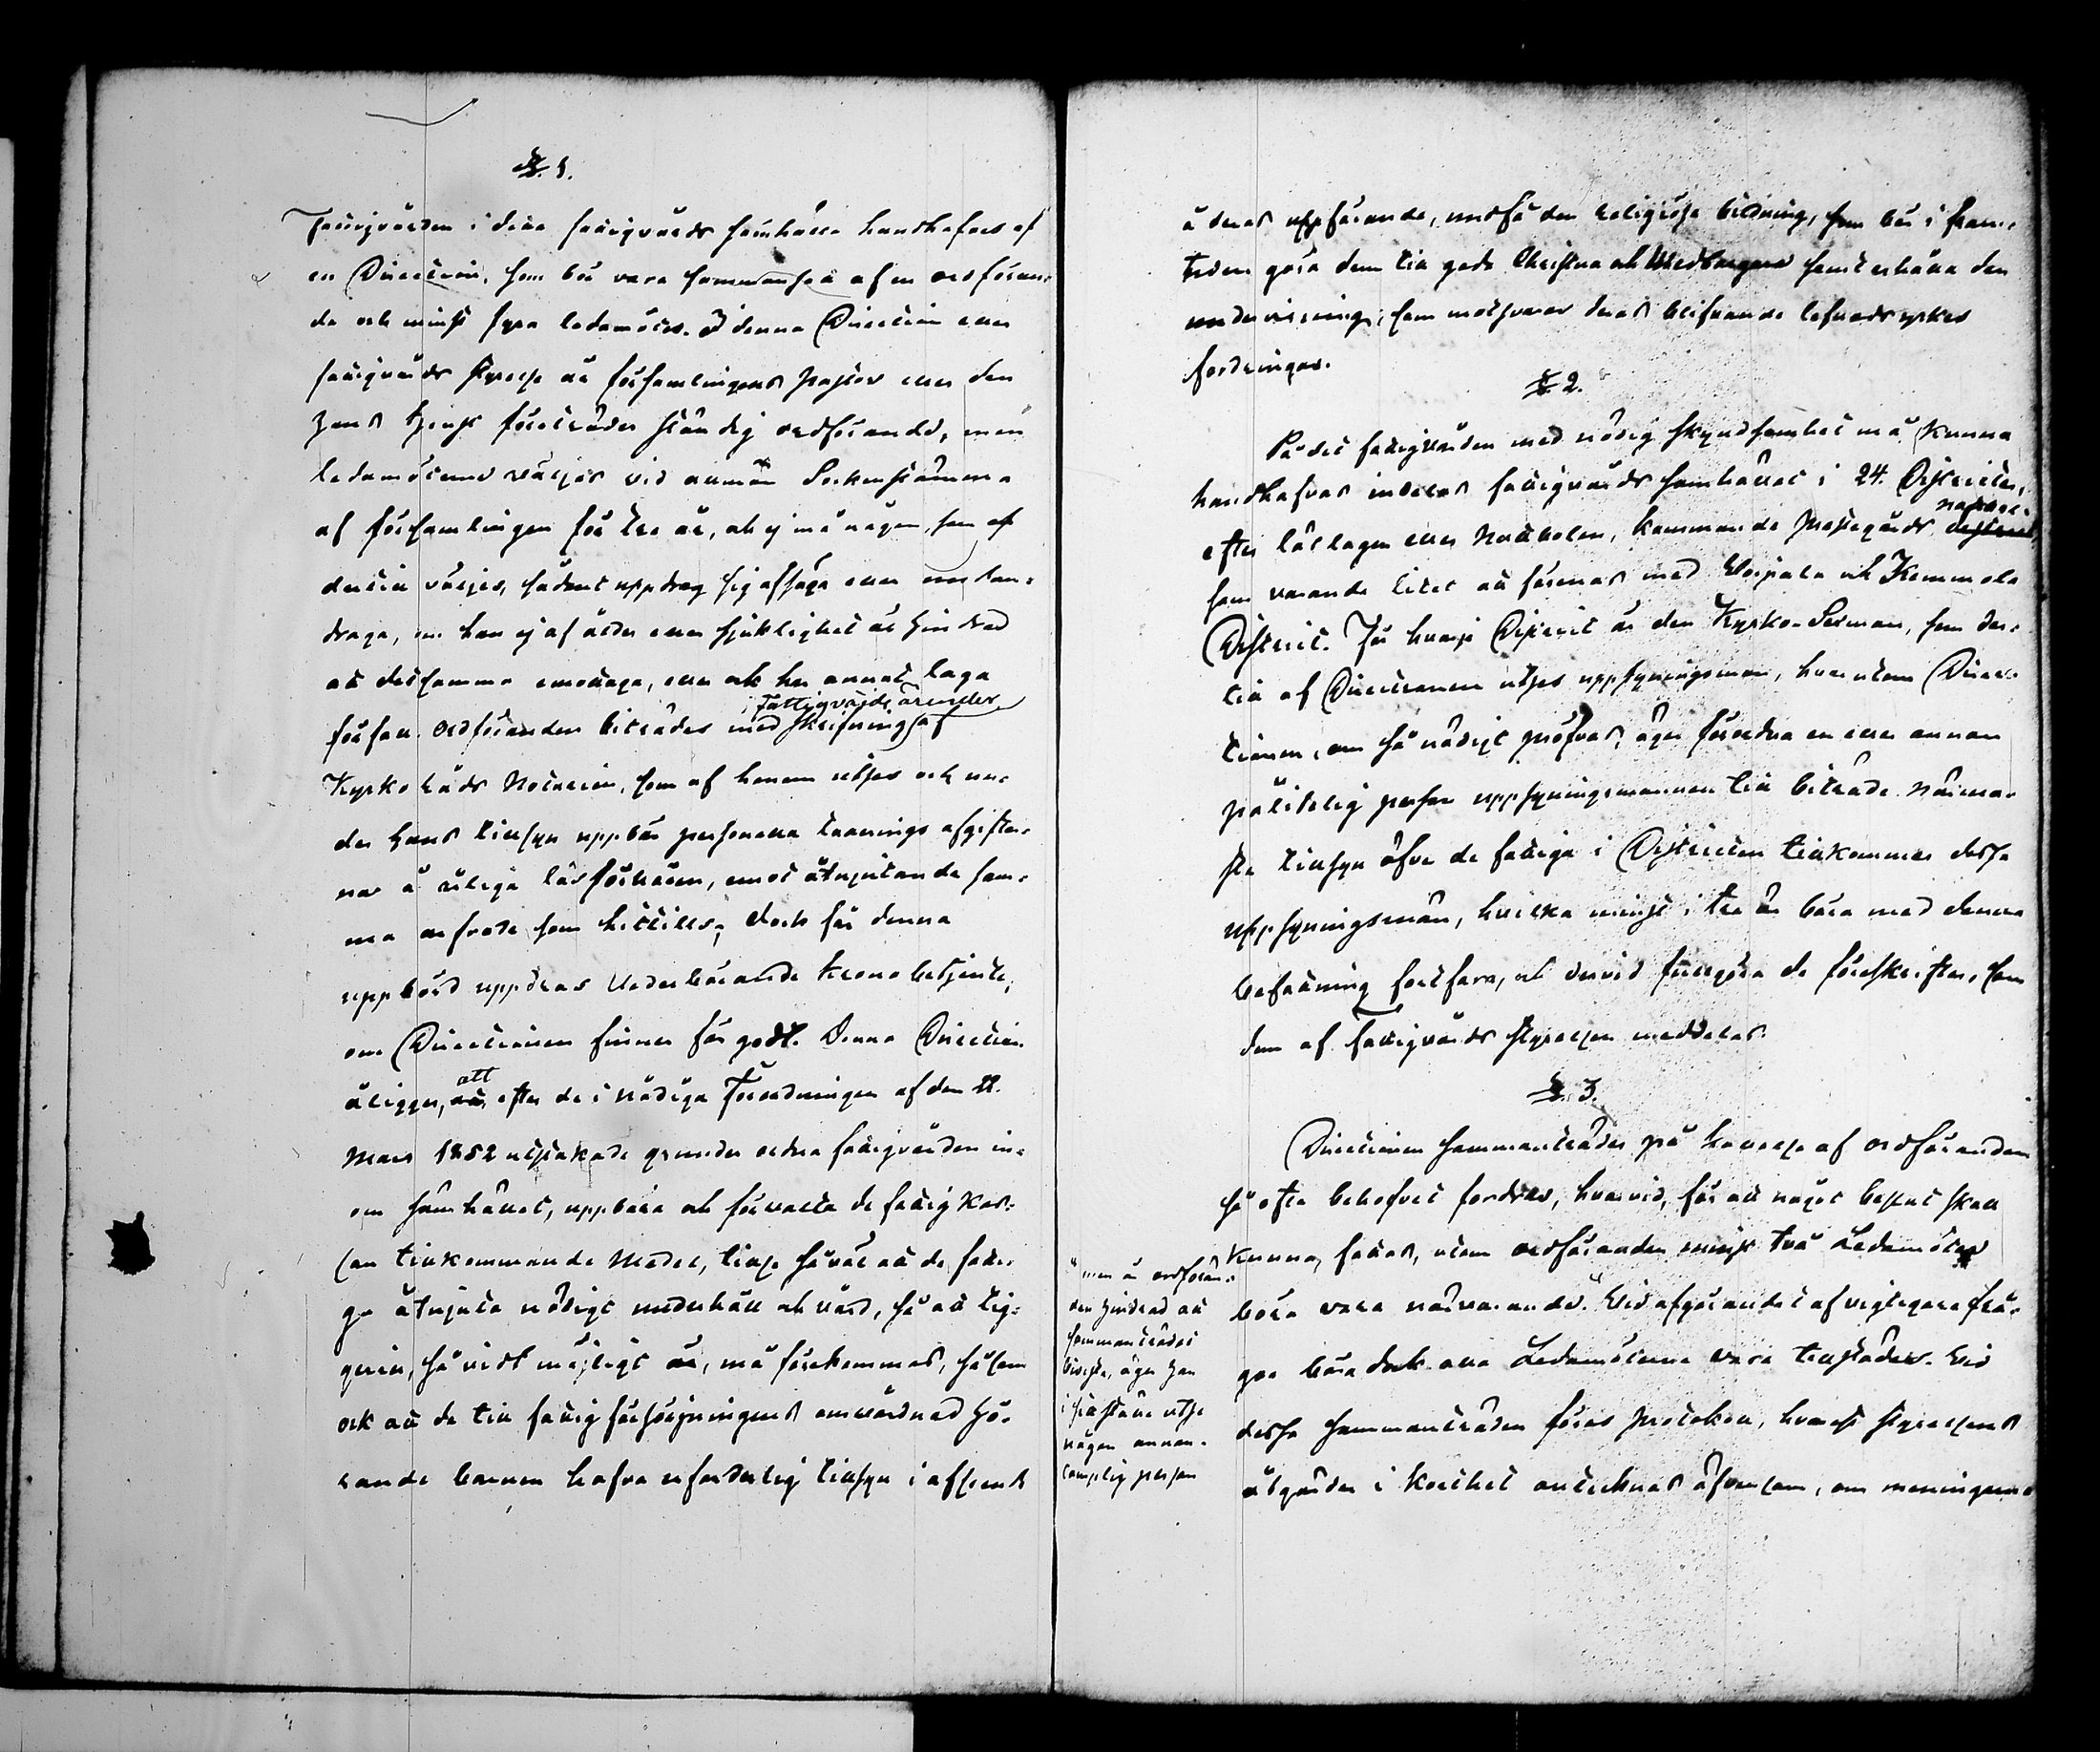 §. 1.
Fattigvården i detta fattigvårds samhälle handhafves af
en Direction, som bör vara sammansatt af en ordföran-
de och minst fyra ledamöter. I denna Direction eller
fattigvårds styrelse är församlingens Pastor eller den
hans tjenst företräder ständig ordförande, men
ledamöterne väljes vid allmän Sockenstämma
af församlingen för tre år, och ej må någon, som af
dertill väljes, sådant uppdrag sig afsäga eller undan-
draga, om han ej af ålder eller sjuklighet är hindrad
att detsamma emottaga, eller ock har annat laga
förfall. Ordföranden biträdes med skrifning af
Fattigvårds ärender
Kyrko Råds Notarien, som af honom utses och un-
der hans tillsyn uppbär personella taxerings afgifter-
na å årliga läsförhören, emot åtnjutande sam-
ma arfvode som hittills; dock får denna
uppbörd uppdras Vederbörande Kronobetjente,
om Directionen finner för godt. Denna Direction
åligger, att efter de i Nådiga Förordningen af den 22.
Mars 1852 utstakade grunder ordna fattigvården in-
om samhället, uppbära och förvalta de fattig Kas-
san tillkommande Medel, tillse såväl att de fatti-
ga åtnjuta nödigt underhåll och vård, så att tig-
geri, så vidt möjligt är, må förekommas, såsom
ock att de till fattigförsörjningens omvårdnad hö-
rande barnen hafva erforderlig tillsyn i afseende
å deras uppförande, undfå den religiösa bildning, som bör i fram-
tiden göra dem till goda Christna och Medborgare samt erhålla den
undervisning, som motsvarar deras blifvande lefnadsyrkes
fordringar.
§. 2.
På det fattigvården med nödig skyndsamhet må kunna
handhafvas indelas fattigvårds samhället i 24. Distrikter,
efter läslagen eller Notkolen, kommande Prestegårds
som varande litet att förenas med Woipala och Kemmola
District. För hvarje District är den Kyrko-Sexman, som der-
till af Directionen utses uppsyningsman, hvarutom Direc-
tionen, om så nödigt pröfvas, äger förordna en eller annan
pålitelig person uppsyningsmannen till biträde. Närma-
ste tillsyn öfver de fattiga i Districten tillkommer dessa
uppsyningsmän, hvilka minst i tre år böra med denna
befattning fortfara, och dervid fullgöra de föreskrifter, som
dem af Fattigvårds styrelsen meddelas.
§. 3.
Directionen sammanträder på kallelse af ordföranden
så ofta behofvet fordrar, hvarvid, för att något beslut skall
kunna fattas, utom ordföranden minst två Ledamöter
böra vara närvarande". Vid afgörandet af vigtigare frå-
gor böra dock alla Ledamöterne vara tillstädes. Vid
dessa sammanträden föres Protokoll, hvarest styrelsens
åtgärder i korthet antecknas äfvensom, om meningarne
" men är ordföran-
den hindrad att
sammanträdet
bivista, äger han
i sitt ställe utse
någon annan
lämplig person